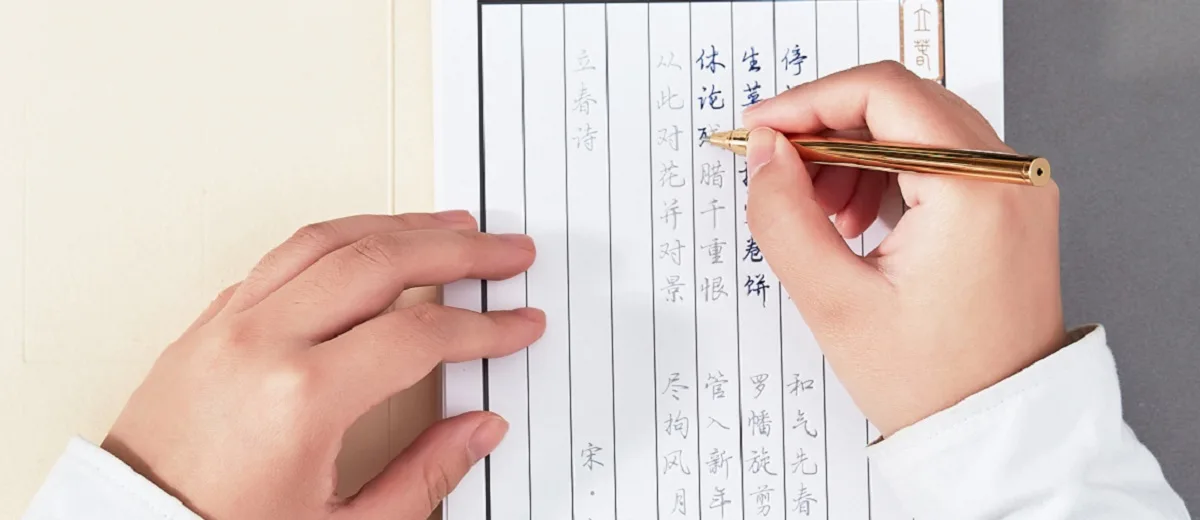 立春
停
和气先春
生
卷饼
罗幡旋剪
休论残腊千重恨
管入新年
从此对花并对景
尽拘风月
立春诗
宋·